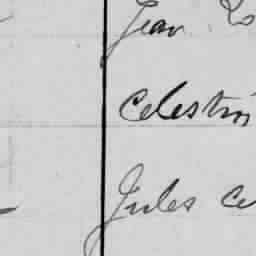 Jean
Celestin
Jules Ce